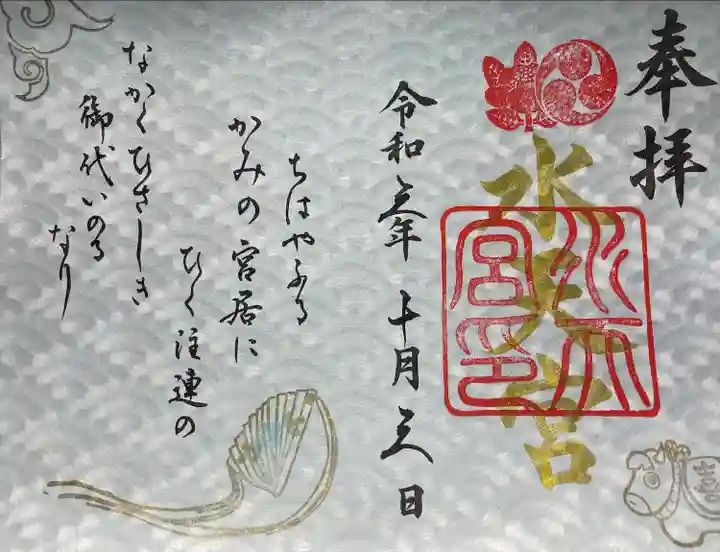 奉拝
水天宮
水天宮印
令和三年 十月三日
ちはやふる
かみの宮居に
ひく注連の
なかくひさしき
御代いのる
なり